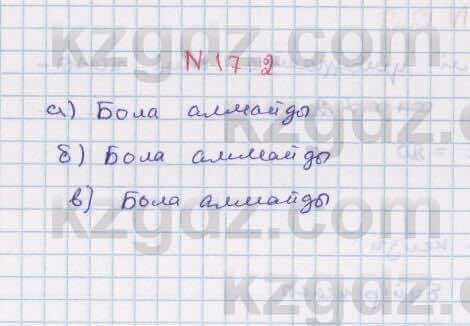 N 17.2
а) Бола алмайды
б) Бола алмайды
в) Бола алмайды
kzgdz.com